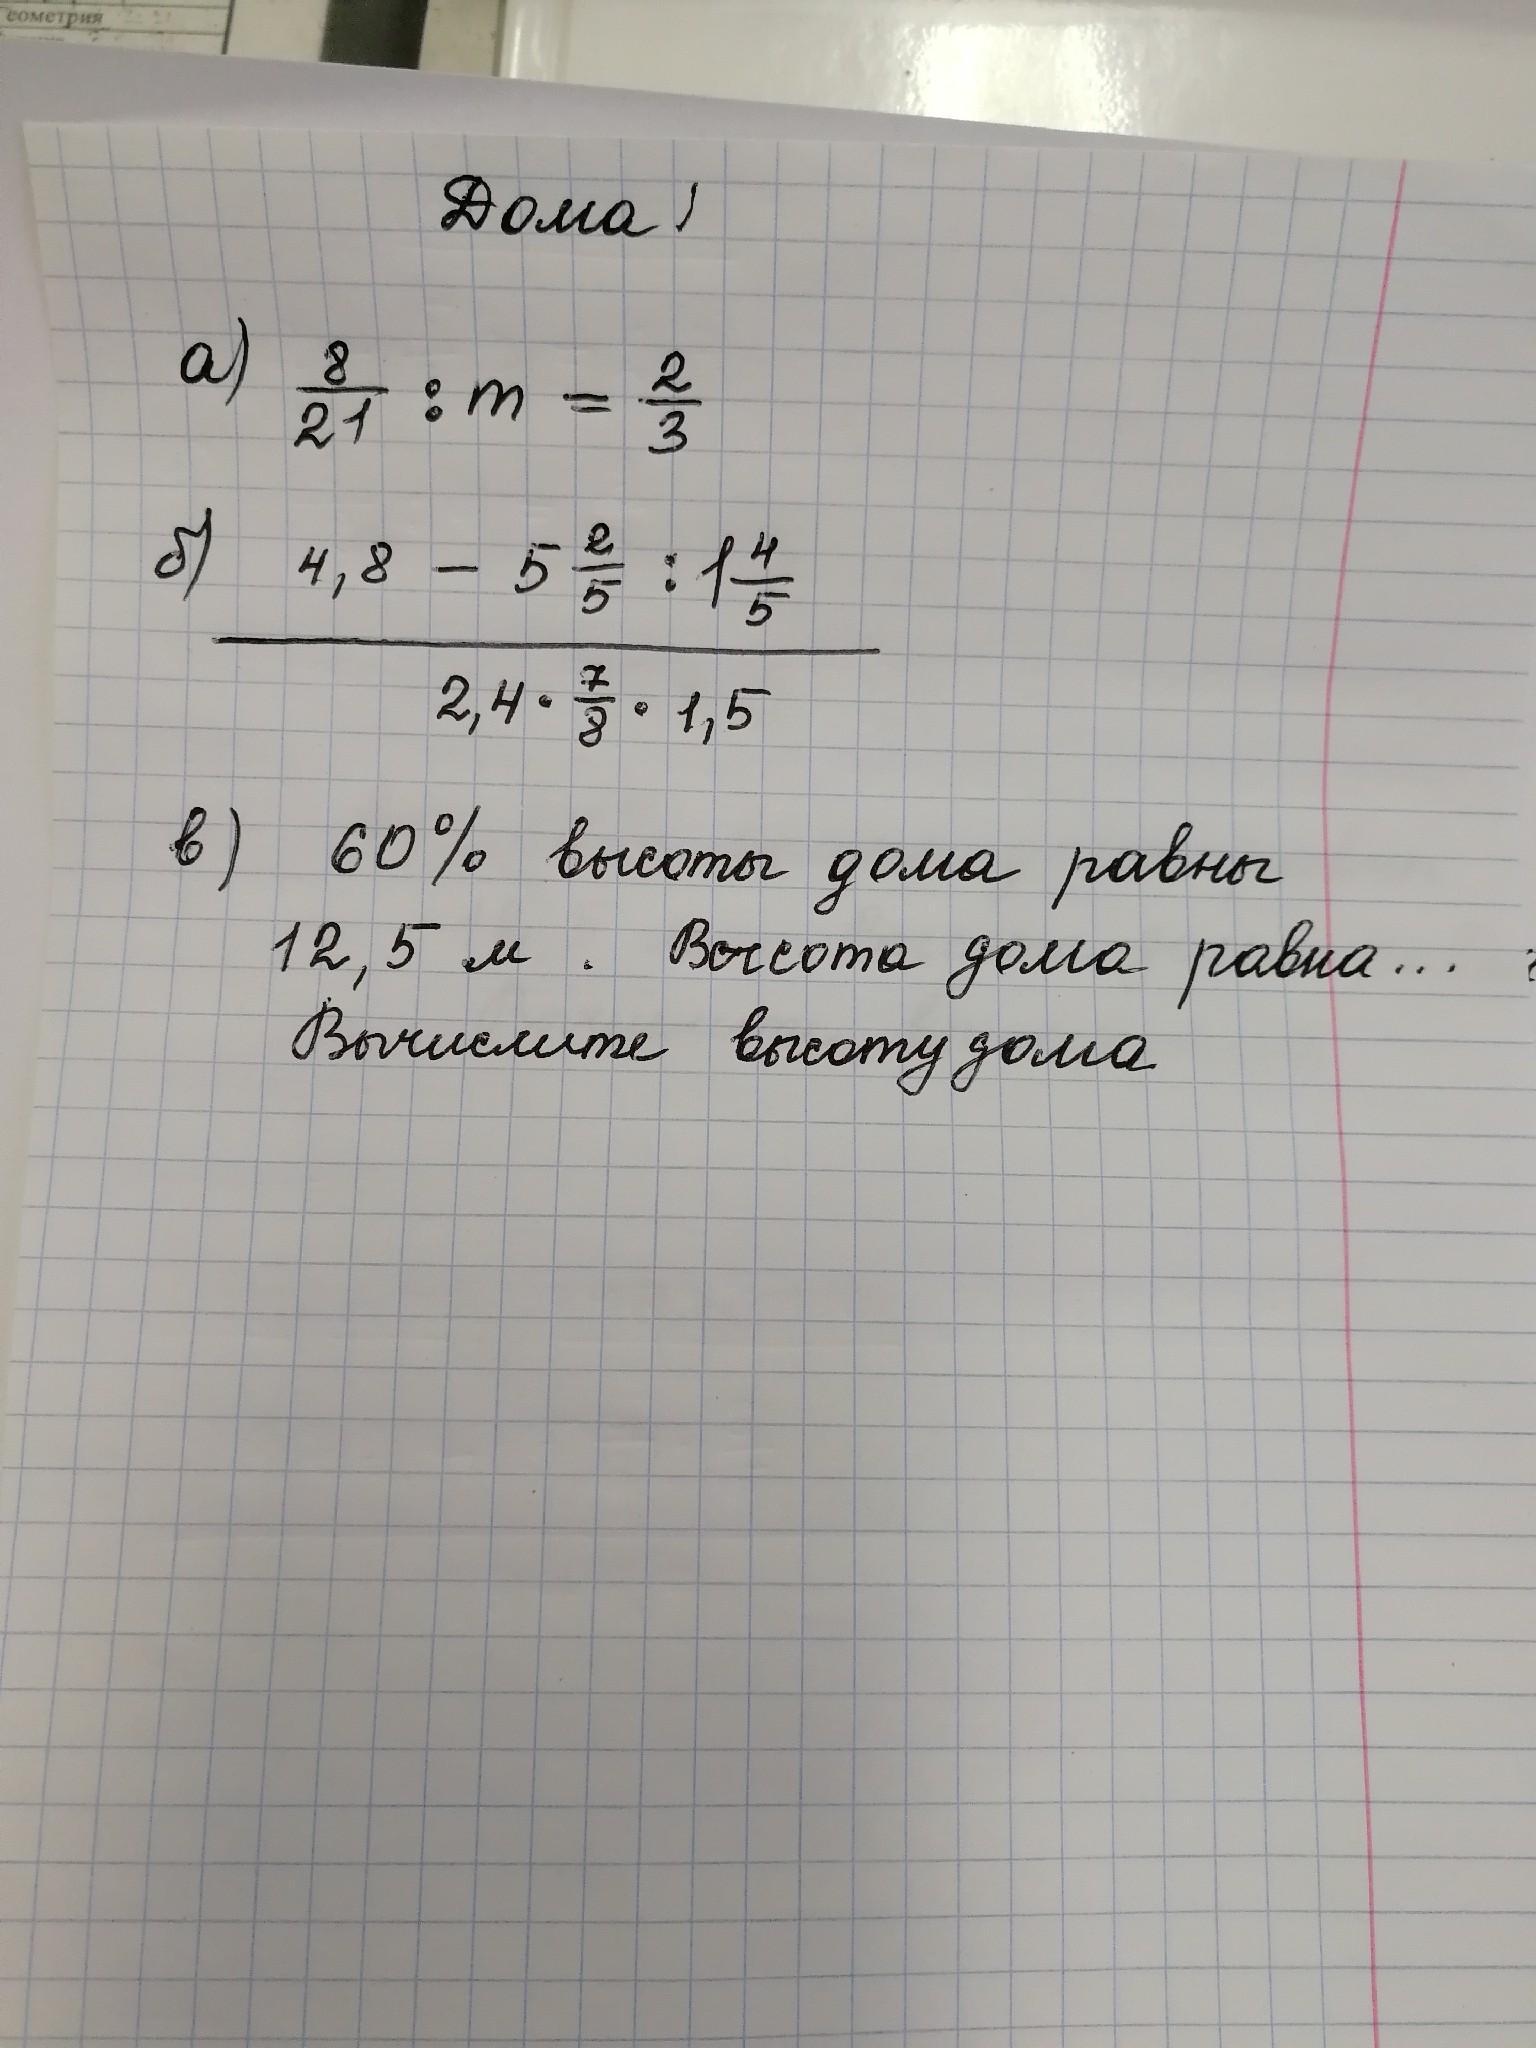 еометрия
Дома!
а) 8/21 : m = 2/3
б) 4,8 - 5 2/5 : 1 4/5
2,4 · 7/8 · 1,5
в) 60% высоты дома равны
12,5 м . Высота дома равна...
Вычислите высоту дома